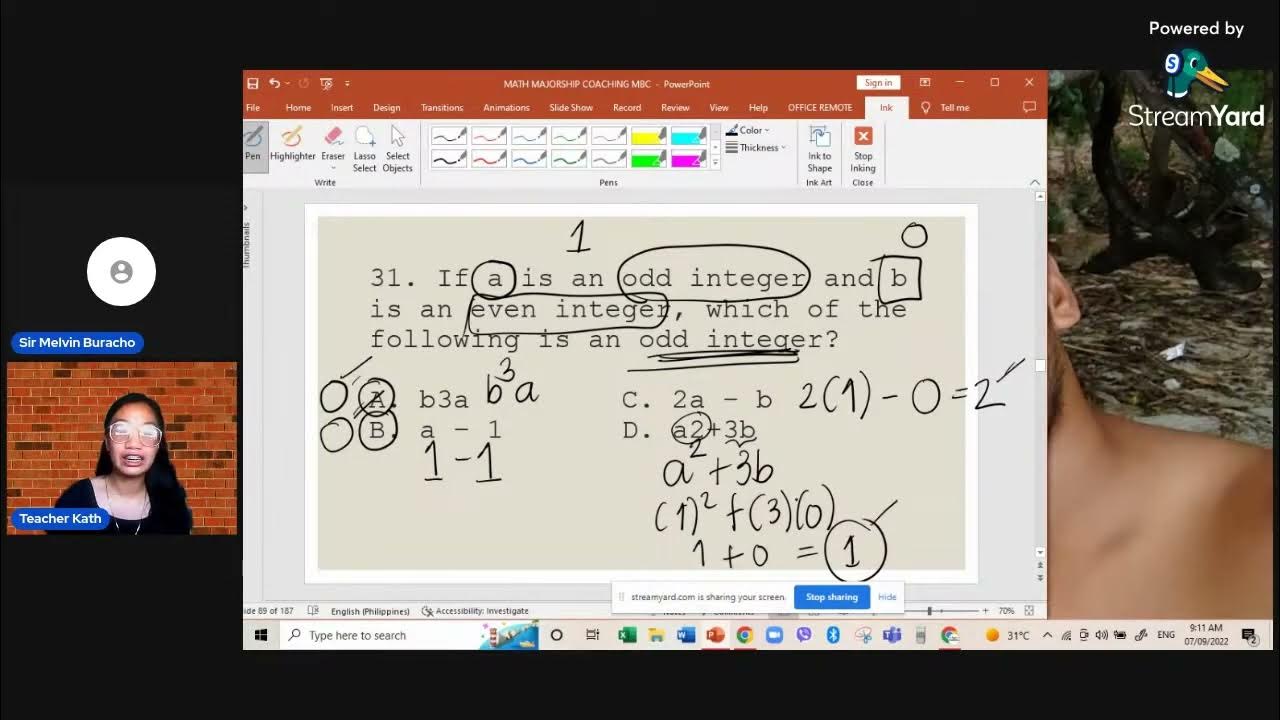 Powered by
StreamYard
MATH MAJORSHIP COACHING MBC - PowerPoint
Sign in
File Home Insert Design Transitions Animations Slide Show Record Review View Help OFFICE REMOTE Ink Tell me
Pen Highlighter Eraser Lasso Select Select Objects
Color
Thickness
Ink to Shape Stop Inking
Write Pens Ink Art Close
Thumbnails
1 0
31. If a is an odd integer and b
is an even integer, which of the
following is an odd integer?
0 A. b3a b³a
C. 2a - b 2(1) - 0 = 2
0 B. a - 1
D. a2+3b
1 - 1
a² + 3b
(1)² + (3)(0)
1 + 0 = 1
Sir Melvin Buracho
Teacher Kath
streamyard.com is sharing your screen. Stop sharing Hide
ide 89 of 187 English (Philippines) Accessibility: Investigate 70%
Type here to search
31°C ENG 9:11 AM
07/09/2022
2